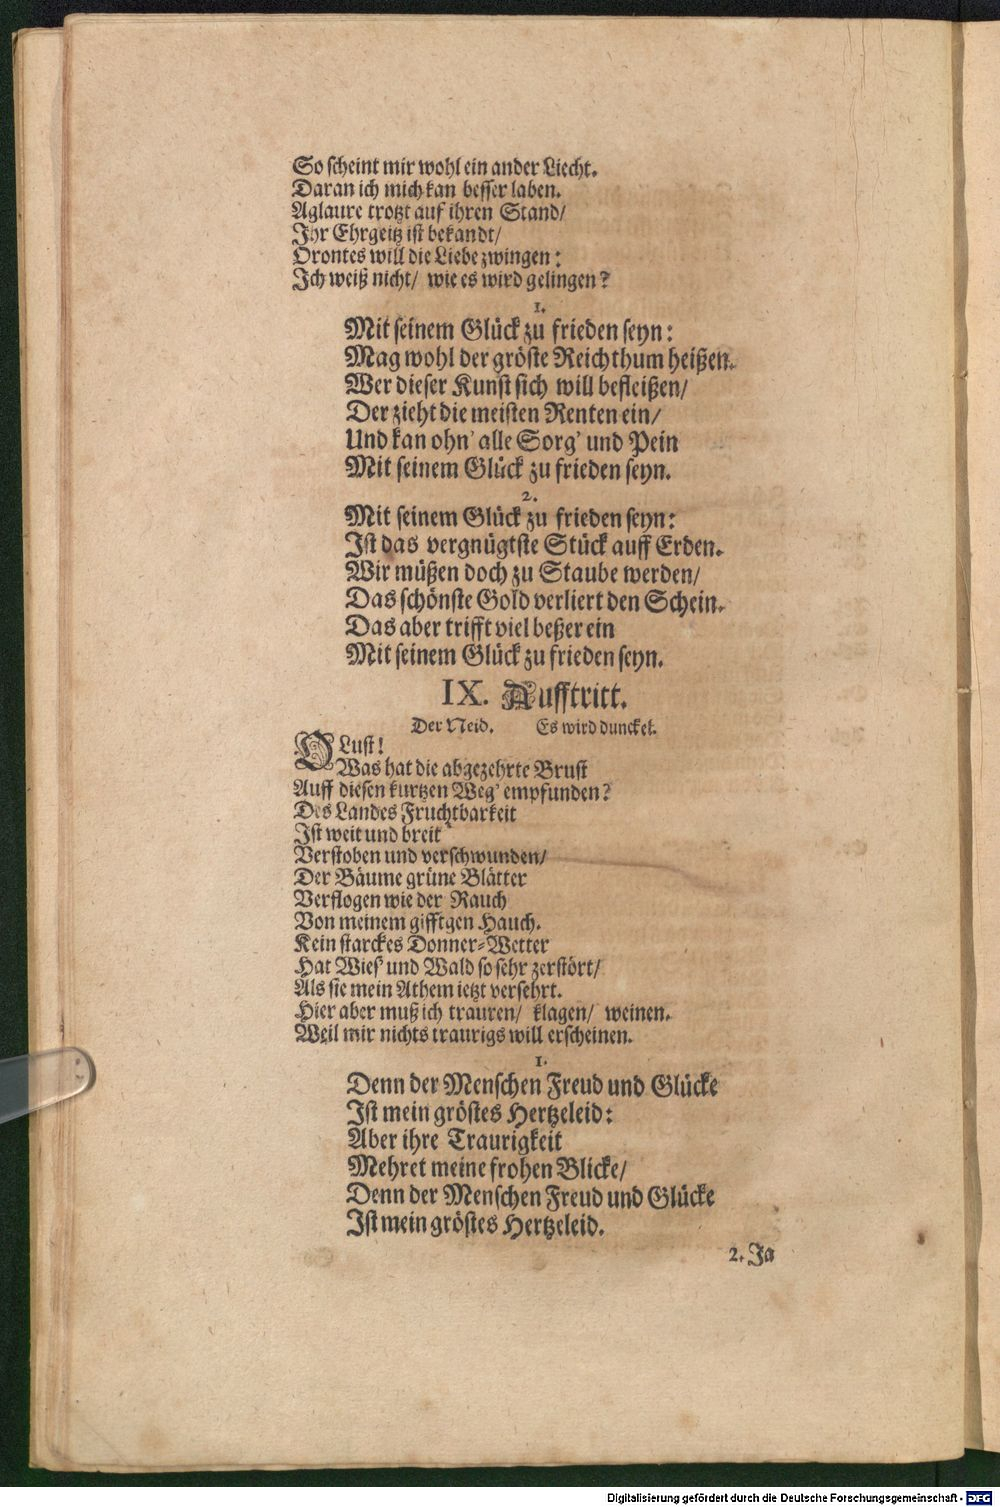 So scheint mir wohl ein ander Liecht.
Daran ich mich kan besser laben.
Aglaure trotzt auf ihren Stand/
Ihr Ehrgeitz ist bekandt/
Orontes will die Liebe zwingen:
Ich weiß nicht/ wie es wird gelingen?
1.
Mit seinem Glück zu frieden seyn:
Mag wohl der gröste Reichthum heißen.
Wer dieser Kunst sich will befleißen/
Der zieht die meisten Renten ein/
Und kan ohn' alle Sorg' und Pein
Mit seinem Glück zu frieden seyn.
2.
Mit seinem Glück zu frieden seyn:
Ist das vergnügtste Stück auff Erden.
Wir müßen doch zu Staube werden/
Das schönste Gold verliert den Schein.
Das aber trifft viel beßer ein
Mit seinem Glück zu frieden seyn.
IX. Aufftritt.
Der Neid. Es wird dunckel.
O Lust!
Was hat die abgezehrte Brust
Auff diesen kurtzen Weg' empfunden?
Des Landes Fruchtbarkeit
Ist weit und breit
Verstoben und verschwunden/
Der Bäume grüne Blätter
Verflogen wie der Rauch
Von meinem gifftgen Hauch.
Kein starckes Donner-Wetter
Hat Wies' und Wald so sehr zerstört/
Als sie mein Athem ietzt versehrt.
Hier aber muß ich trauren/ klagen/ weinen.
Weil mir nichts traurigs will erscheinen.
1.
Denn der Menschen Freud und Glücke
Ist mein gröstes Hertzeleid:
Aber ihre Traurigkeit
Mehret meine frohen Blicke/
Denn der Menschen Freud und Glücke
Ist mein gröstes Hertzeleid.
2. Ja
Digitalisierung gefördert durch die Deutsche Forschungsgemeinschaft - DFG